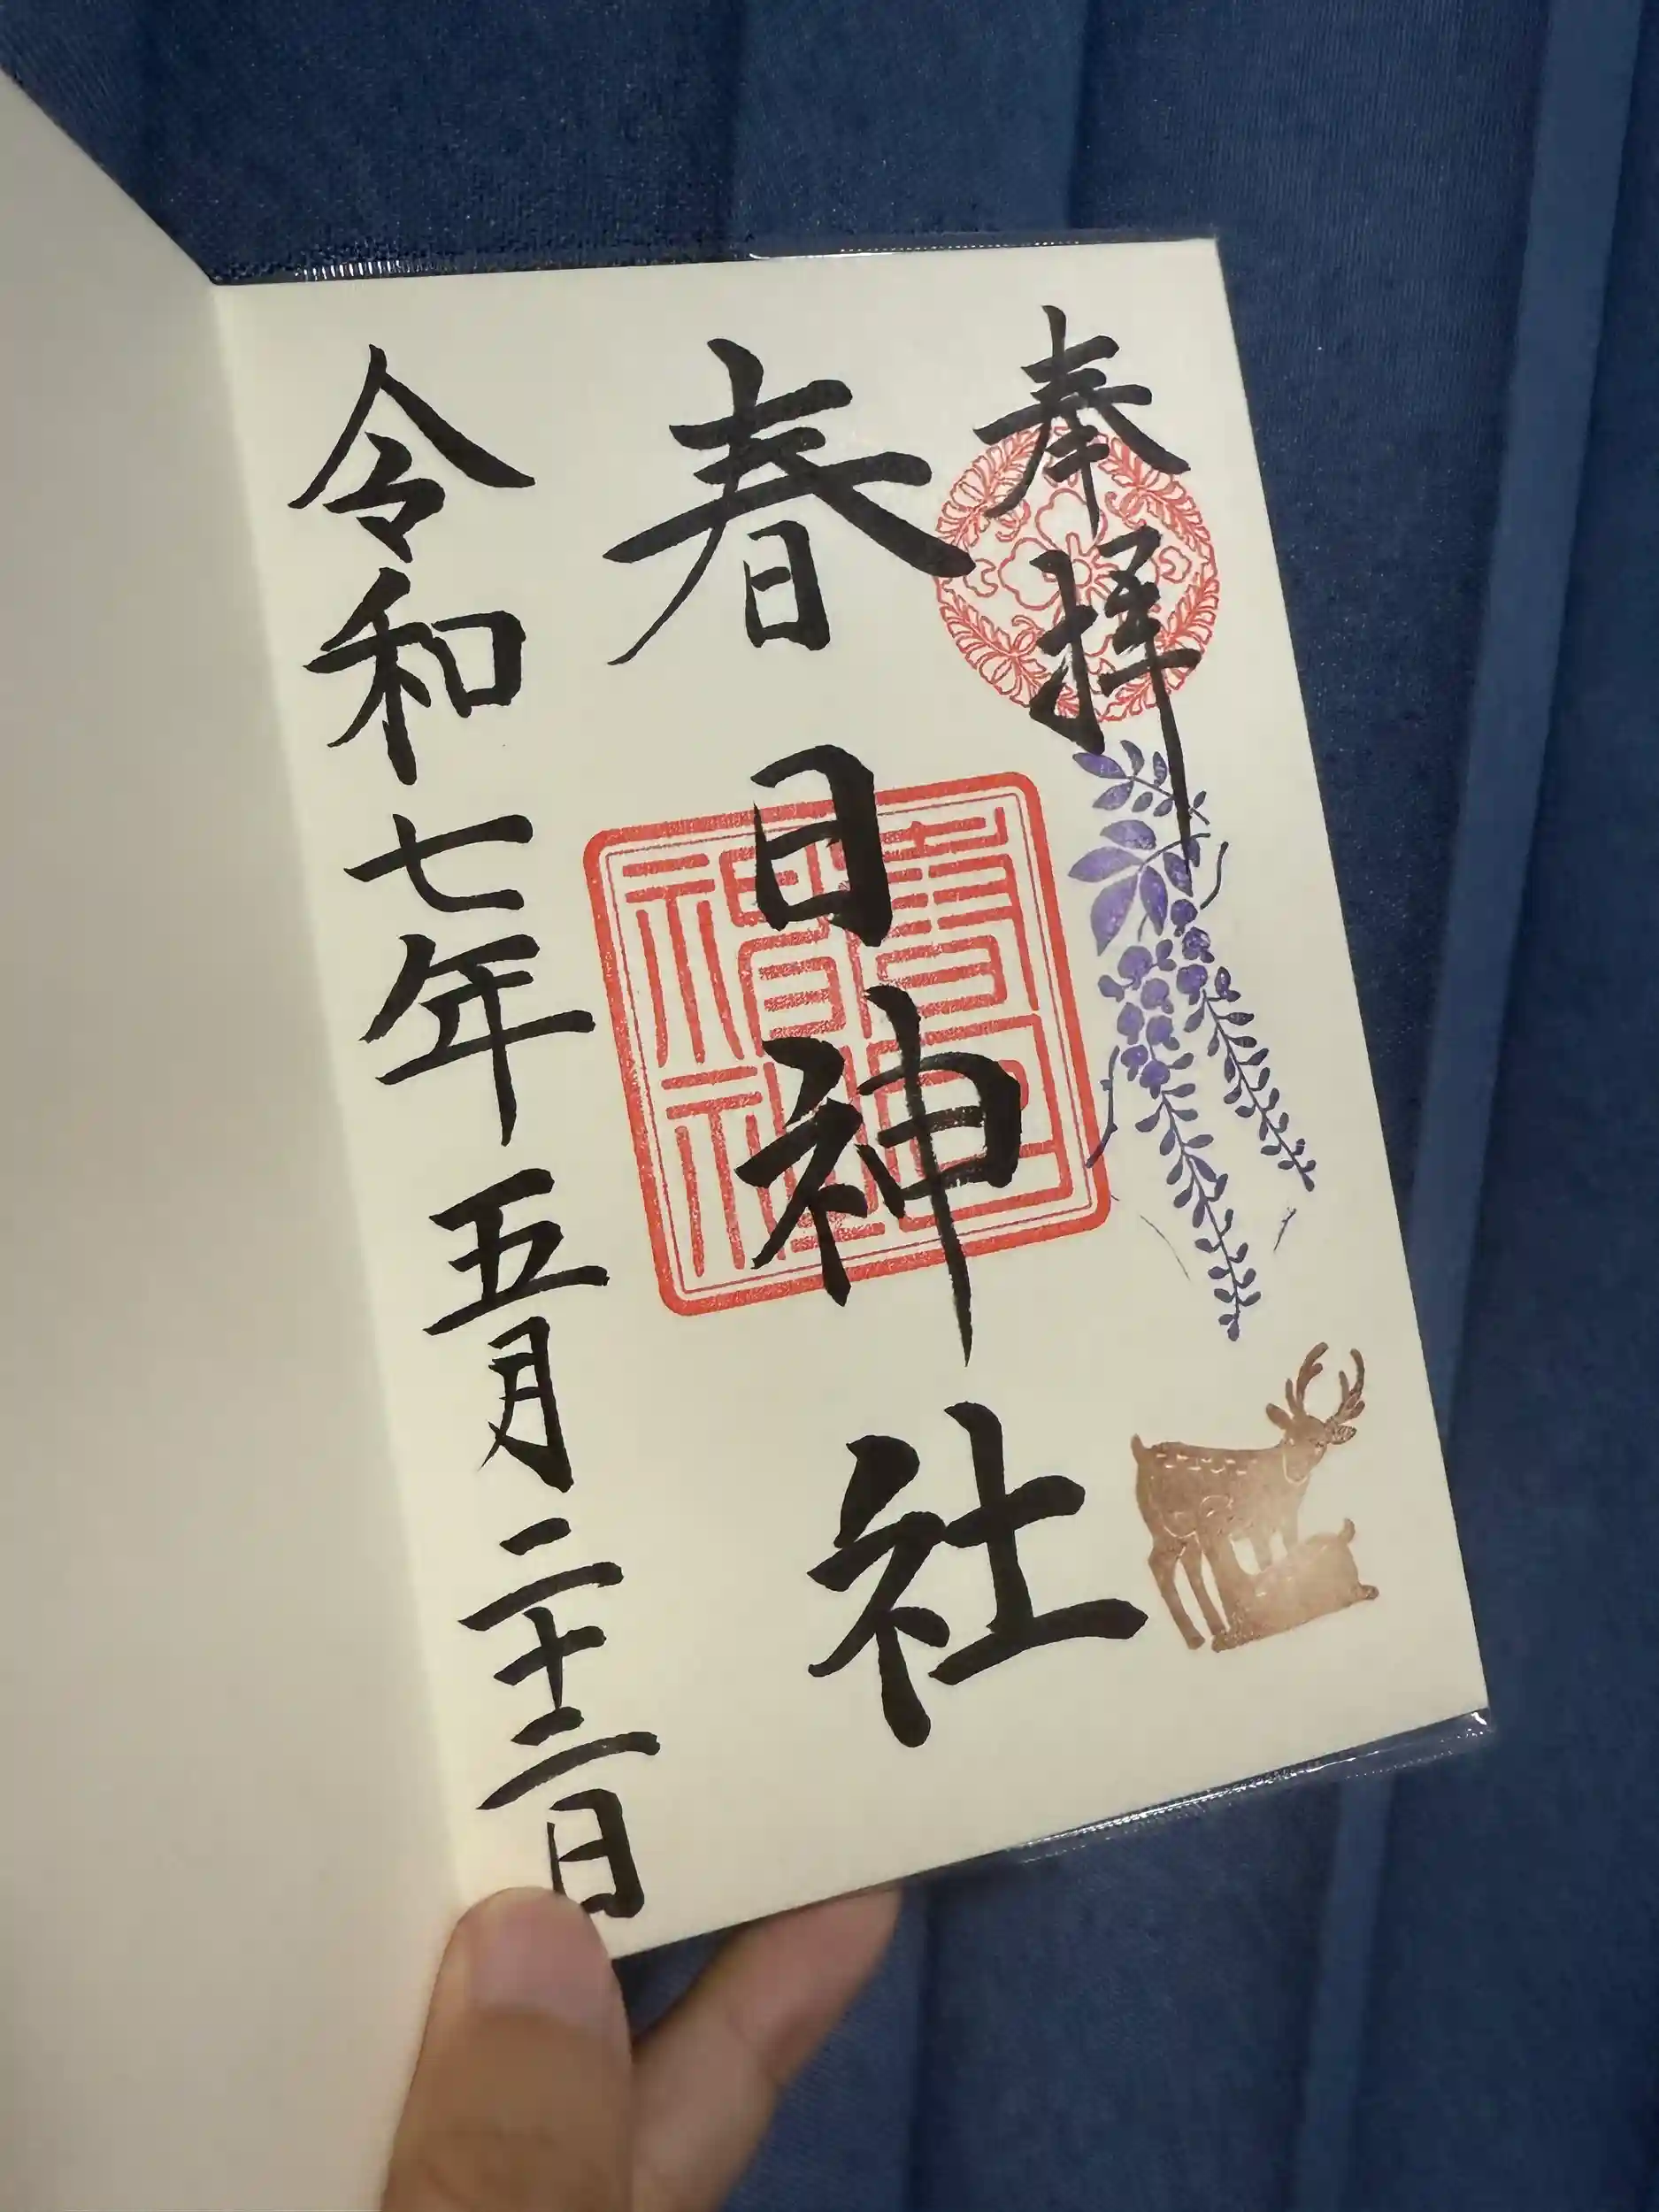 奉拝
春日神社
春日
神社
令和七年五月二十二日